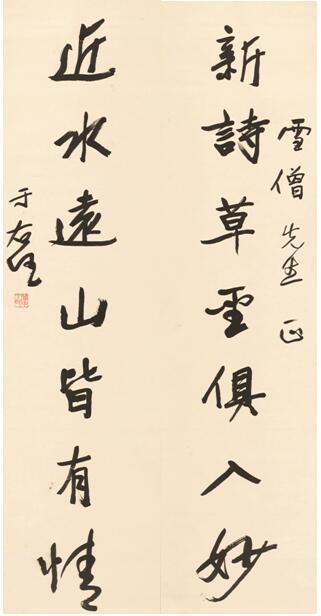 雪僧先生正
新詩草聖俱入妙
近水遠山皆有情
于右任